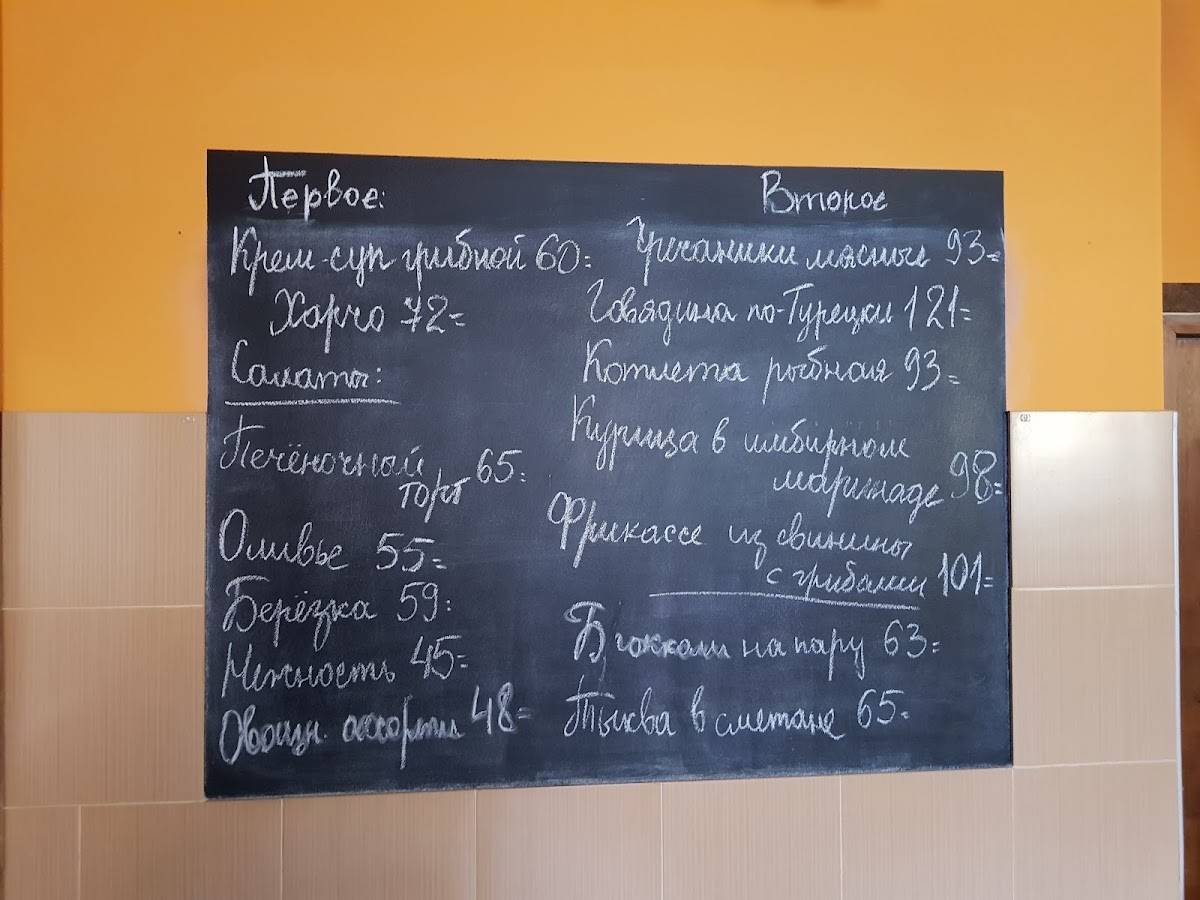 Первое:
Крем-суп грибной 60=
Харчо 72=
Салаты:
Печёночный
торт 65=
Оливье 55=
Берёзка 59=
Нежность 45=
Овощн. ассорти 48=
Второе
Гречаники мясные 93=
Говядина по-Турецки 121=
Котлета рыбная 93=
Курица в имбирном
маринаде 98=
Фрикассе из свинины
с грибами 101=
на пару 63=
Тыква в сметане 65=